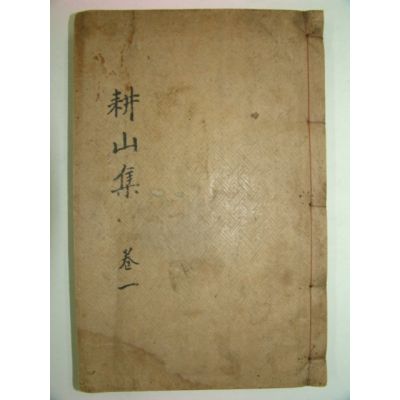 耕山集
卷一